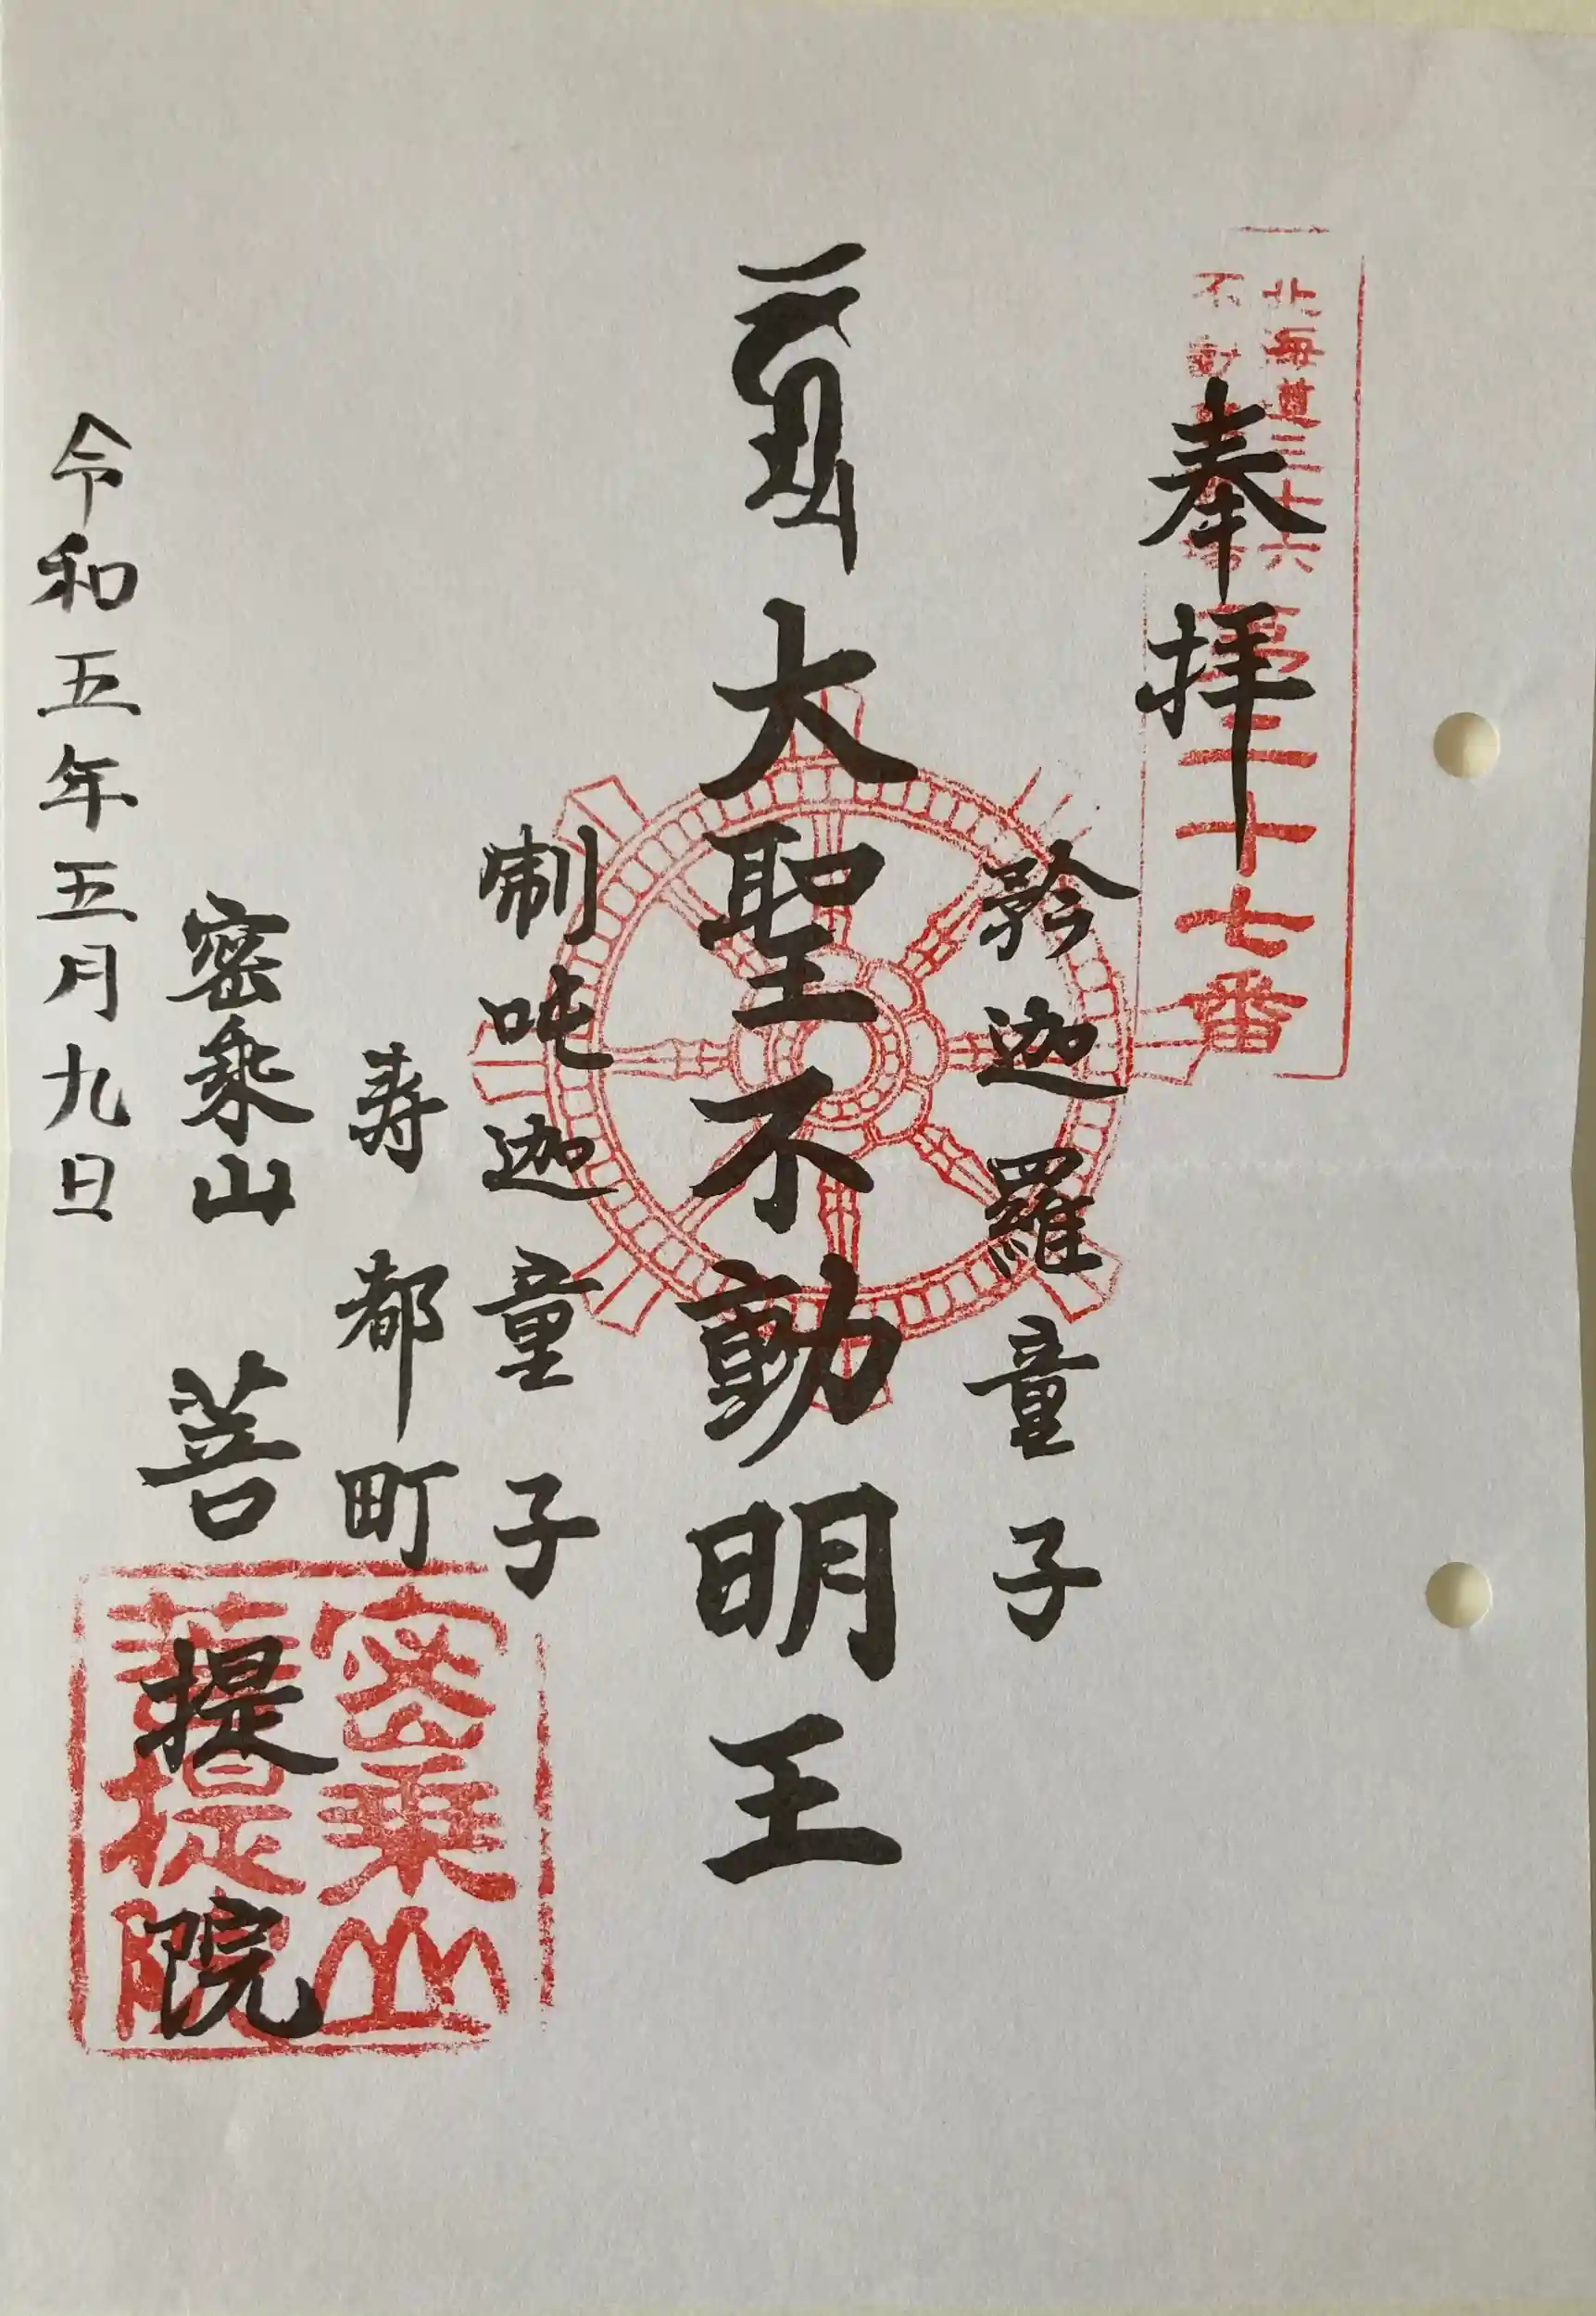 北海道三十六
不動
第二十七番
奉拝
矜迦羅童子
大聖不動明王
制吒迦童子
寿都町
密乗山 菩提院
令和五年五月九日
密乗山
菩提院